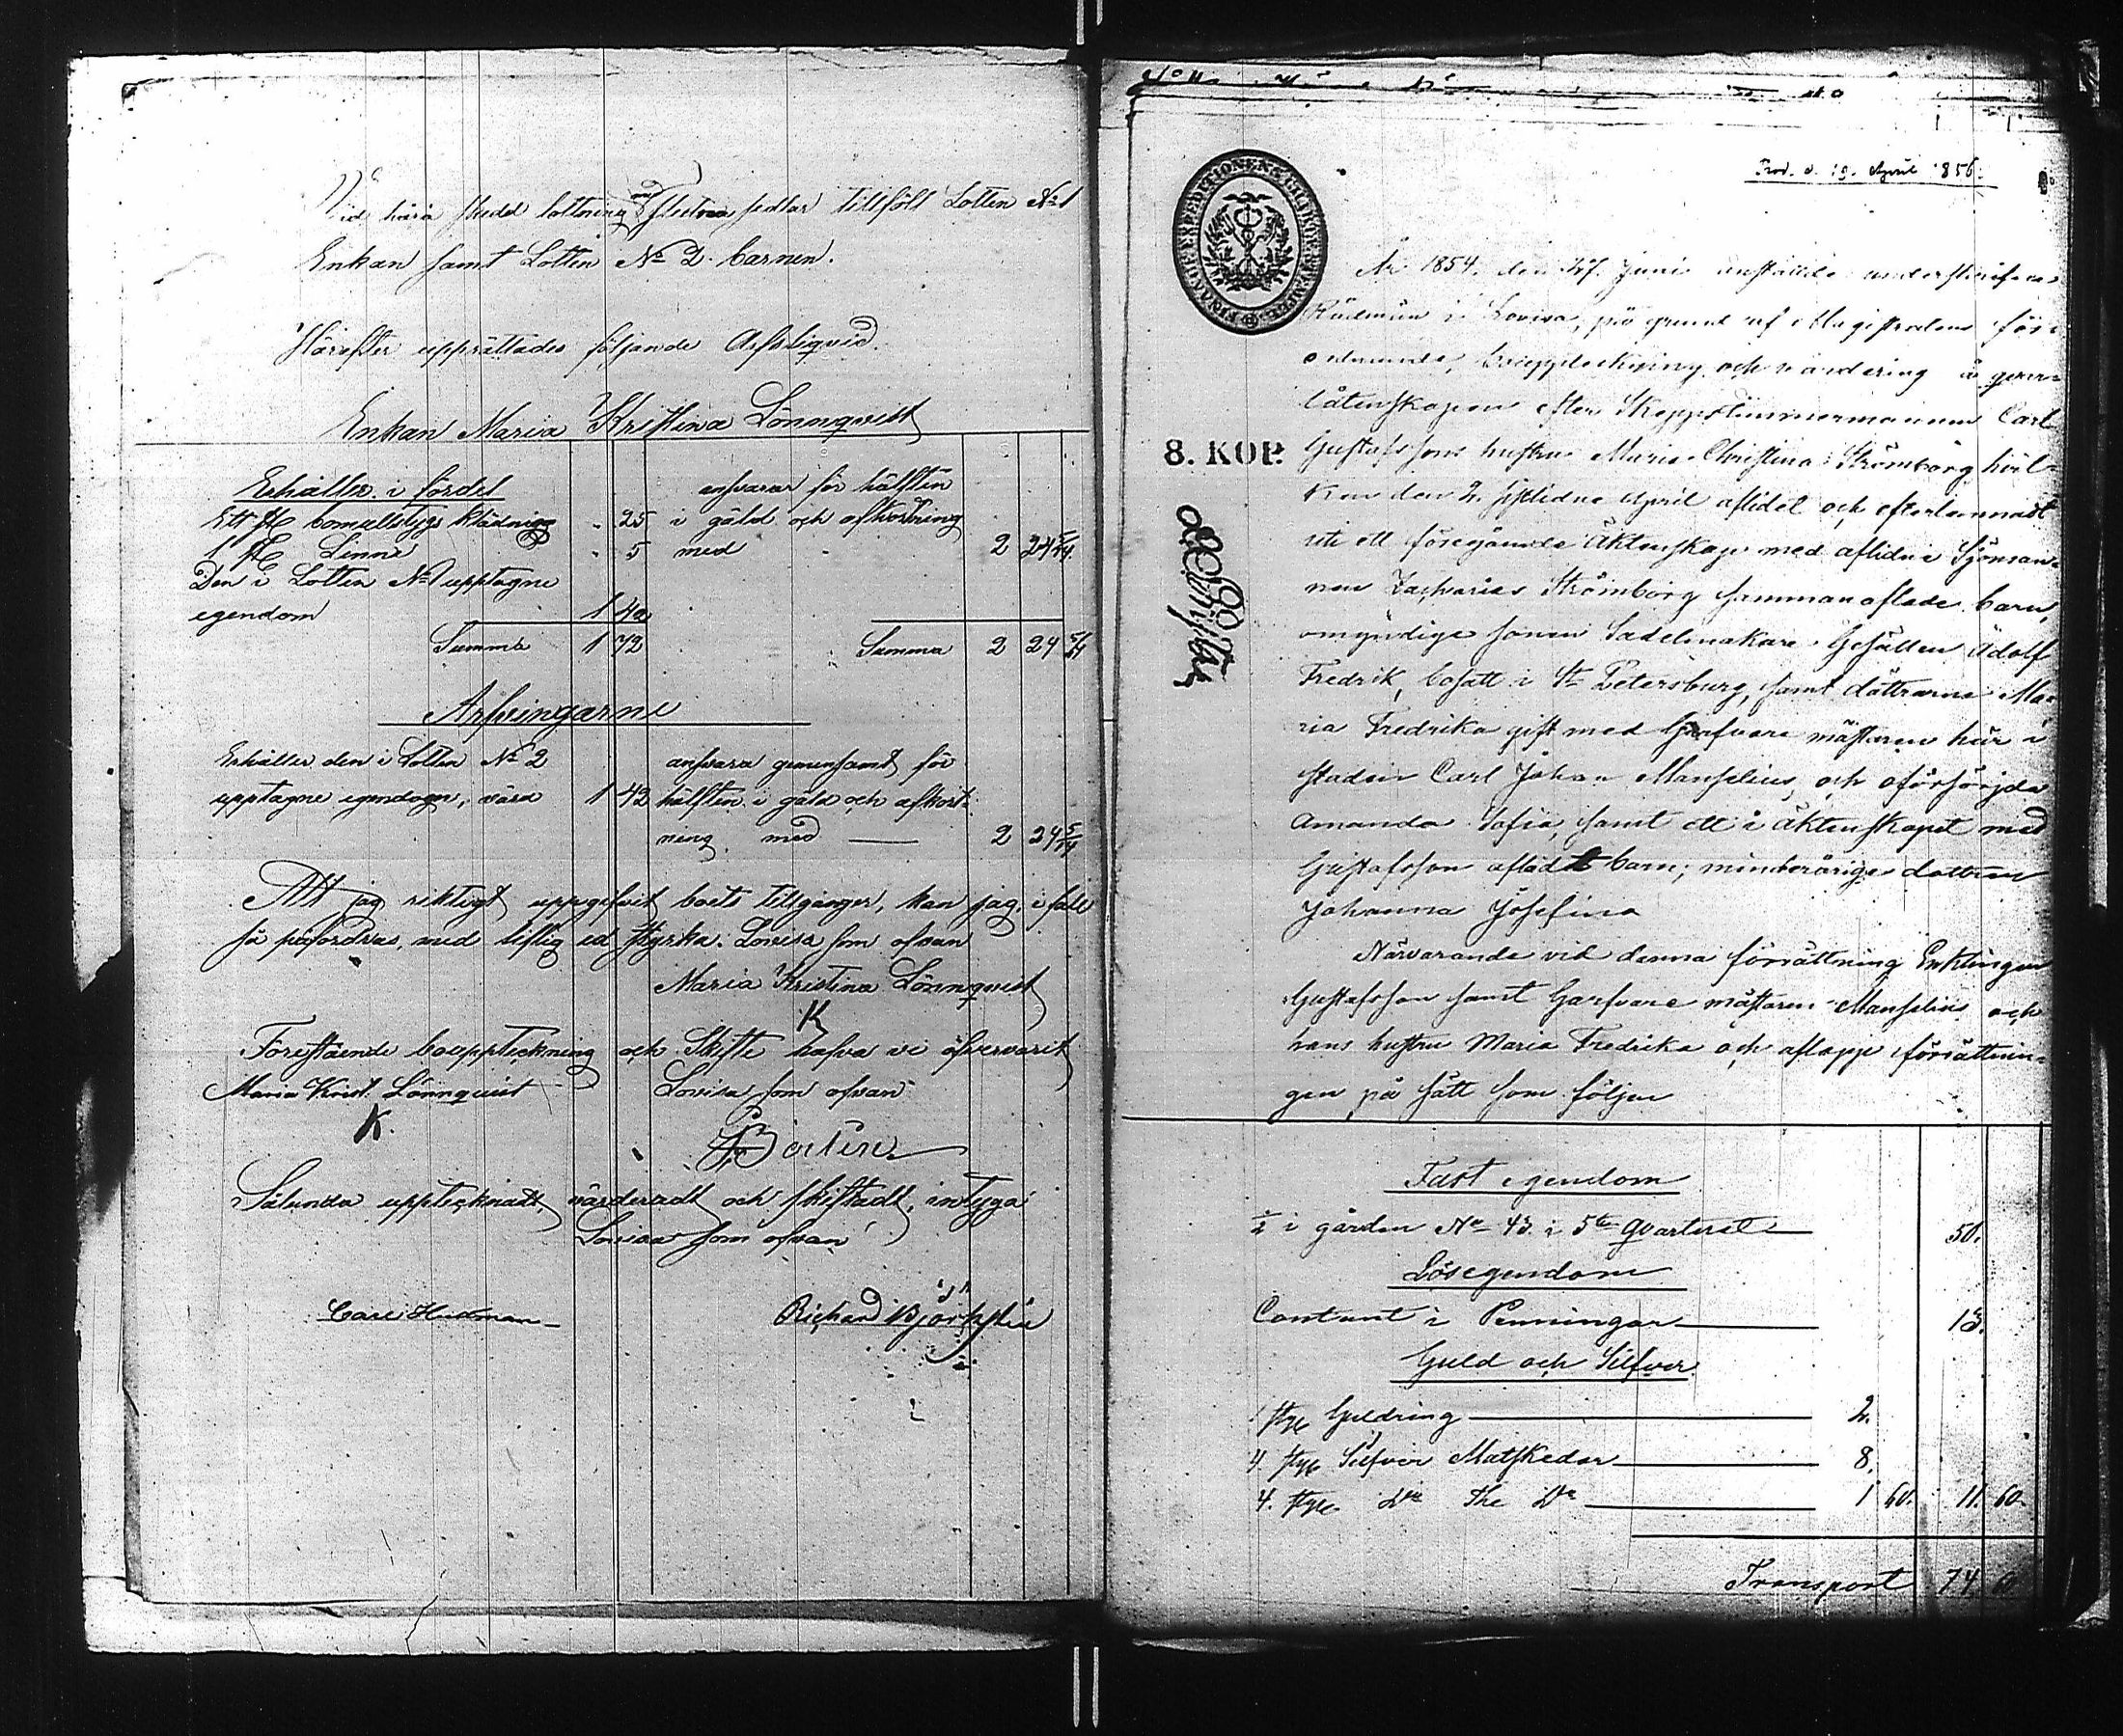 Vid härå skedd lottning af slutna sedlar tillföll Lotten No 1
Enkan samt Lotten No 2 barnen.
Härefter upprättades följande Arfsliqvid.
Enkan Maria Kristina Lönnqvist
Erhåller i fördel
Ett st bomullstygs klädning - 25
1 st Linne - 5
Den i Lotten No 1 upptagne
egendom 1 42
Summa 1 72
ansvarar för hälften
i gäld och afkortning
med 2 24 5/14
Summa 2 24 5/14
Arfvingarne
Erhåller den i Lotten No 2
upptagne egendoen, värd 1 42
ansvara gemensamt för
hälften i gäld och afkort-
ning med 2 24 5/14
Att jag riktigt uppgifvit boets tillgångar, kan jag, i fall
så påfordras, med liflig ed styrka. Lovisa som ofvan
Maria Kristina Lönnqvist
K
Förestående bouppteckning och Skifte hafva vi öfvervarit
Lovisa som ofvan
Maria Krist. Lönnquist
K.
Sålunda upptecknadt, värderadt och skiftadt, intyga
Lovisa som ofvan
Carl Hudman
Richard Björk
Prod. d. 19. April 1856.
FINANCE EXPEDITIONENS CHARTÆ
8. KOP.
År 1854. den 27. Juni anstälde underskrifven
Rådman i Lovisa, på grund af Magistratens för-
ordnande, bouppteckning och värdering å qvar-
låtenskapen efter Skeppstimmermannen Carl
Gustafssons hustru Maria Christina Strömborg hvil-
ken den 2. sistlidne April aflidet och efterlemnadt
uti ett föregående Äktenskap med aflidne Sjöman-
nen Zacharias Strömborg sammanaflade barn,
omyndige sonen Sadelmakare Gesällen Adolf
Fredrik, bosatt i St Petersburg, samt döttrarne Ma-
ria Fredrika gift med Garfvare mästaren här i
staden Carl Johan Manselius, och oförsörjda
Amanda Sofia, samt ett i äktenskapet med
Gustafsson afladt barn; minderåriga dottren
Johanna Josefina
Närvarande vid denna förrättning Enklingen
Gustafsson samt Garfvare mästaren Manselius och
hans hustru Maria Fredrika och aflopp förrättnin-
gen på sätt som följer
Fast egendom
1/2 i gården No 43. i 5te Qvarteret 50.
Lösegendom
Contant i Penningar 13.
Guld och Silfver
1 styk Guldring 2.
4. styk Silfver Matskedar 8.
4. styk Do The Do 1 60. 11. 60.
Transport 74 60